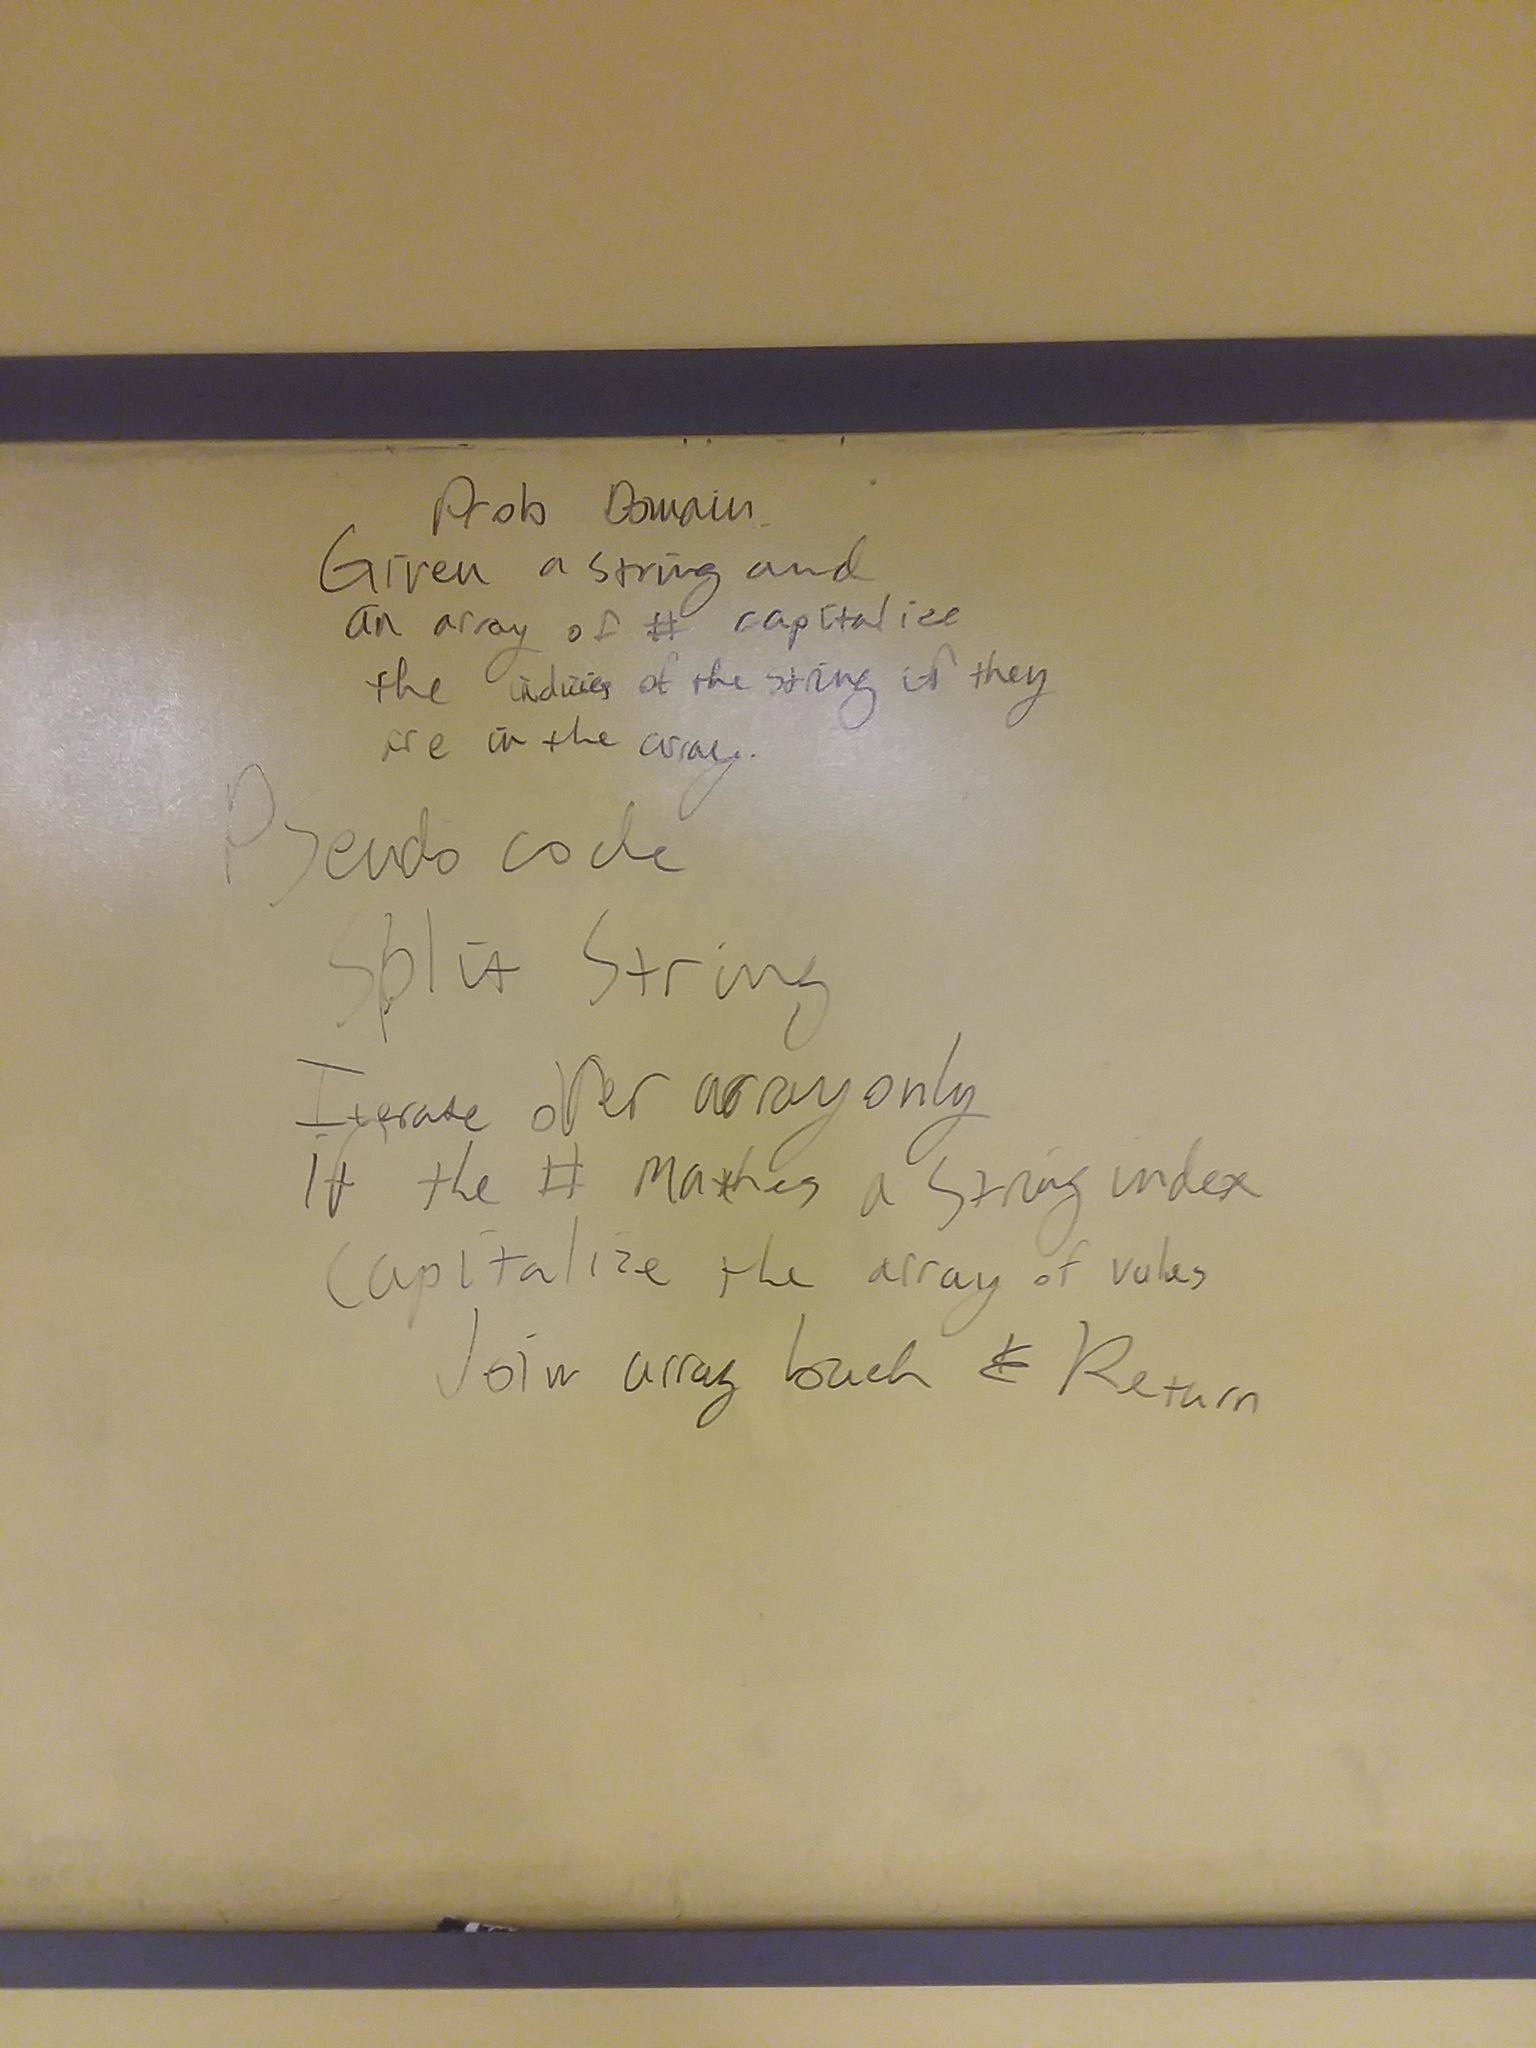 Prob Domain
Given a string and
an array of # capitalize
the indicies of the string if they
are in the array.
Pseudo code
Split String
Iterate over array only
if the # Mathes a String index
Capitalize the array of vales
Join array back & Return